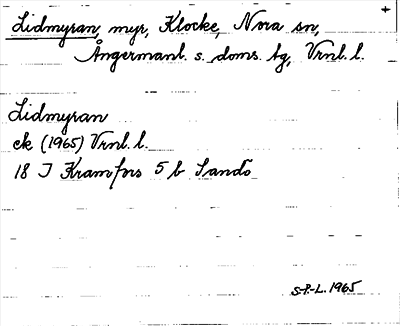 Lidmyran, myr, Klocke, Nora sn,
Ångermanl. s. doms. hg, Vrnl. l.
Lidmyran
ek (1965) Vrnl. l.
18 J Kramfors 5 b Sandö
S-P-L. 1965